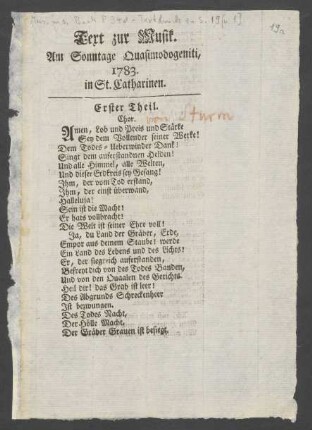 19.
Text zur Musik.
Am Sonntage Quasimodogeniti,
1783.
in St. Catharinen.
Erster Theil.
von Sturm
Chor.
Amen, Lob und Preis und Stärke
Sey dem Vollender seiner Werke!
Dem Todes-Ueberwinder Dank!
Singt dem auferstandnen Helden!
Und alle Himmel, alle Welten,
Und dieser Erdkreis sey Gesang!
Ihm, der vom Tod erstand,
Ihm, der einst überwand,
Halleluja!
Sein ist die Macht!
Er hats vollbracht!
Die Welt ist seiner Ehre voll!
Ja, du Land der Gräber, Erde,
Empor aus deinem Staube! werde
Ein Land des Lebens und des Lichts!
Er, der siegreich auferstanden,
Befreyt dich von des Todes Banden,
Und von den Quaalen des Gerichts.
Heil dir! das Grab ist leer!
Des Abgrunds Schreckenheer
Ist bezwungen.
Des Todes Nacht,
Der Hölle Macht,
Der Gräber Grauen ist besiegt.